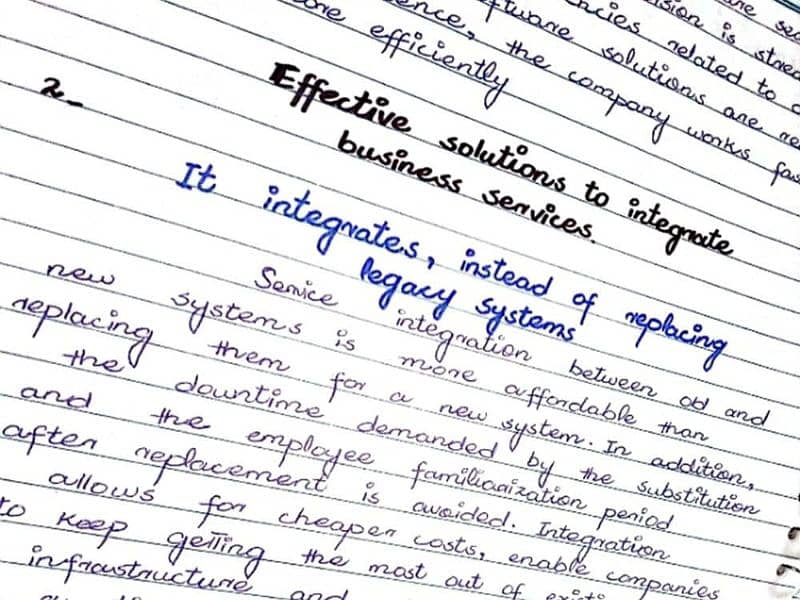 is stored
related to
software solutions are
the company works fas
efficiently
2_ Effective solutions to integrate
business services.
It integrates, instead of replacing
legacy systems
Service integration between old and
new systems is more affordable than
replacing them for a new system. In addition,
the downtime demanded by the substitution
and the employee familiarization period
after replacement is avoided. Integration
allows for cheaper costs, enable companies
to keep getting the most out of
infraustructure and